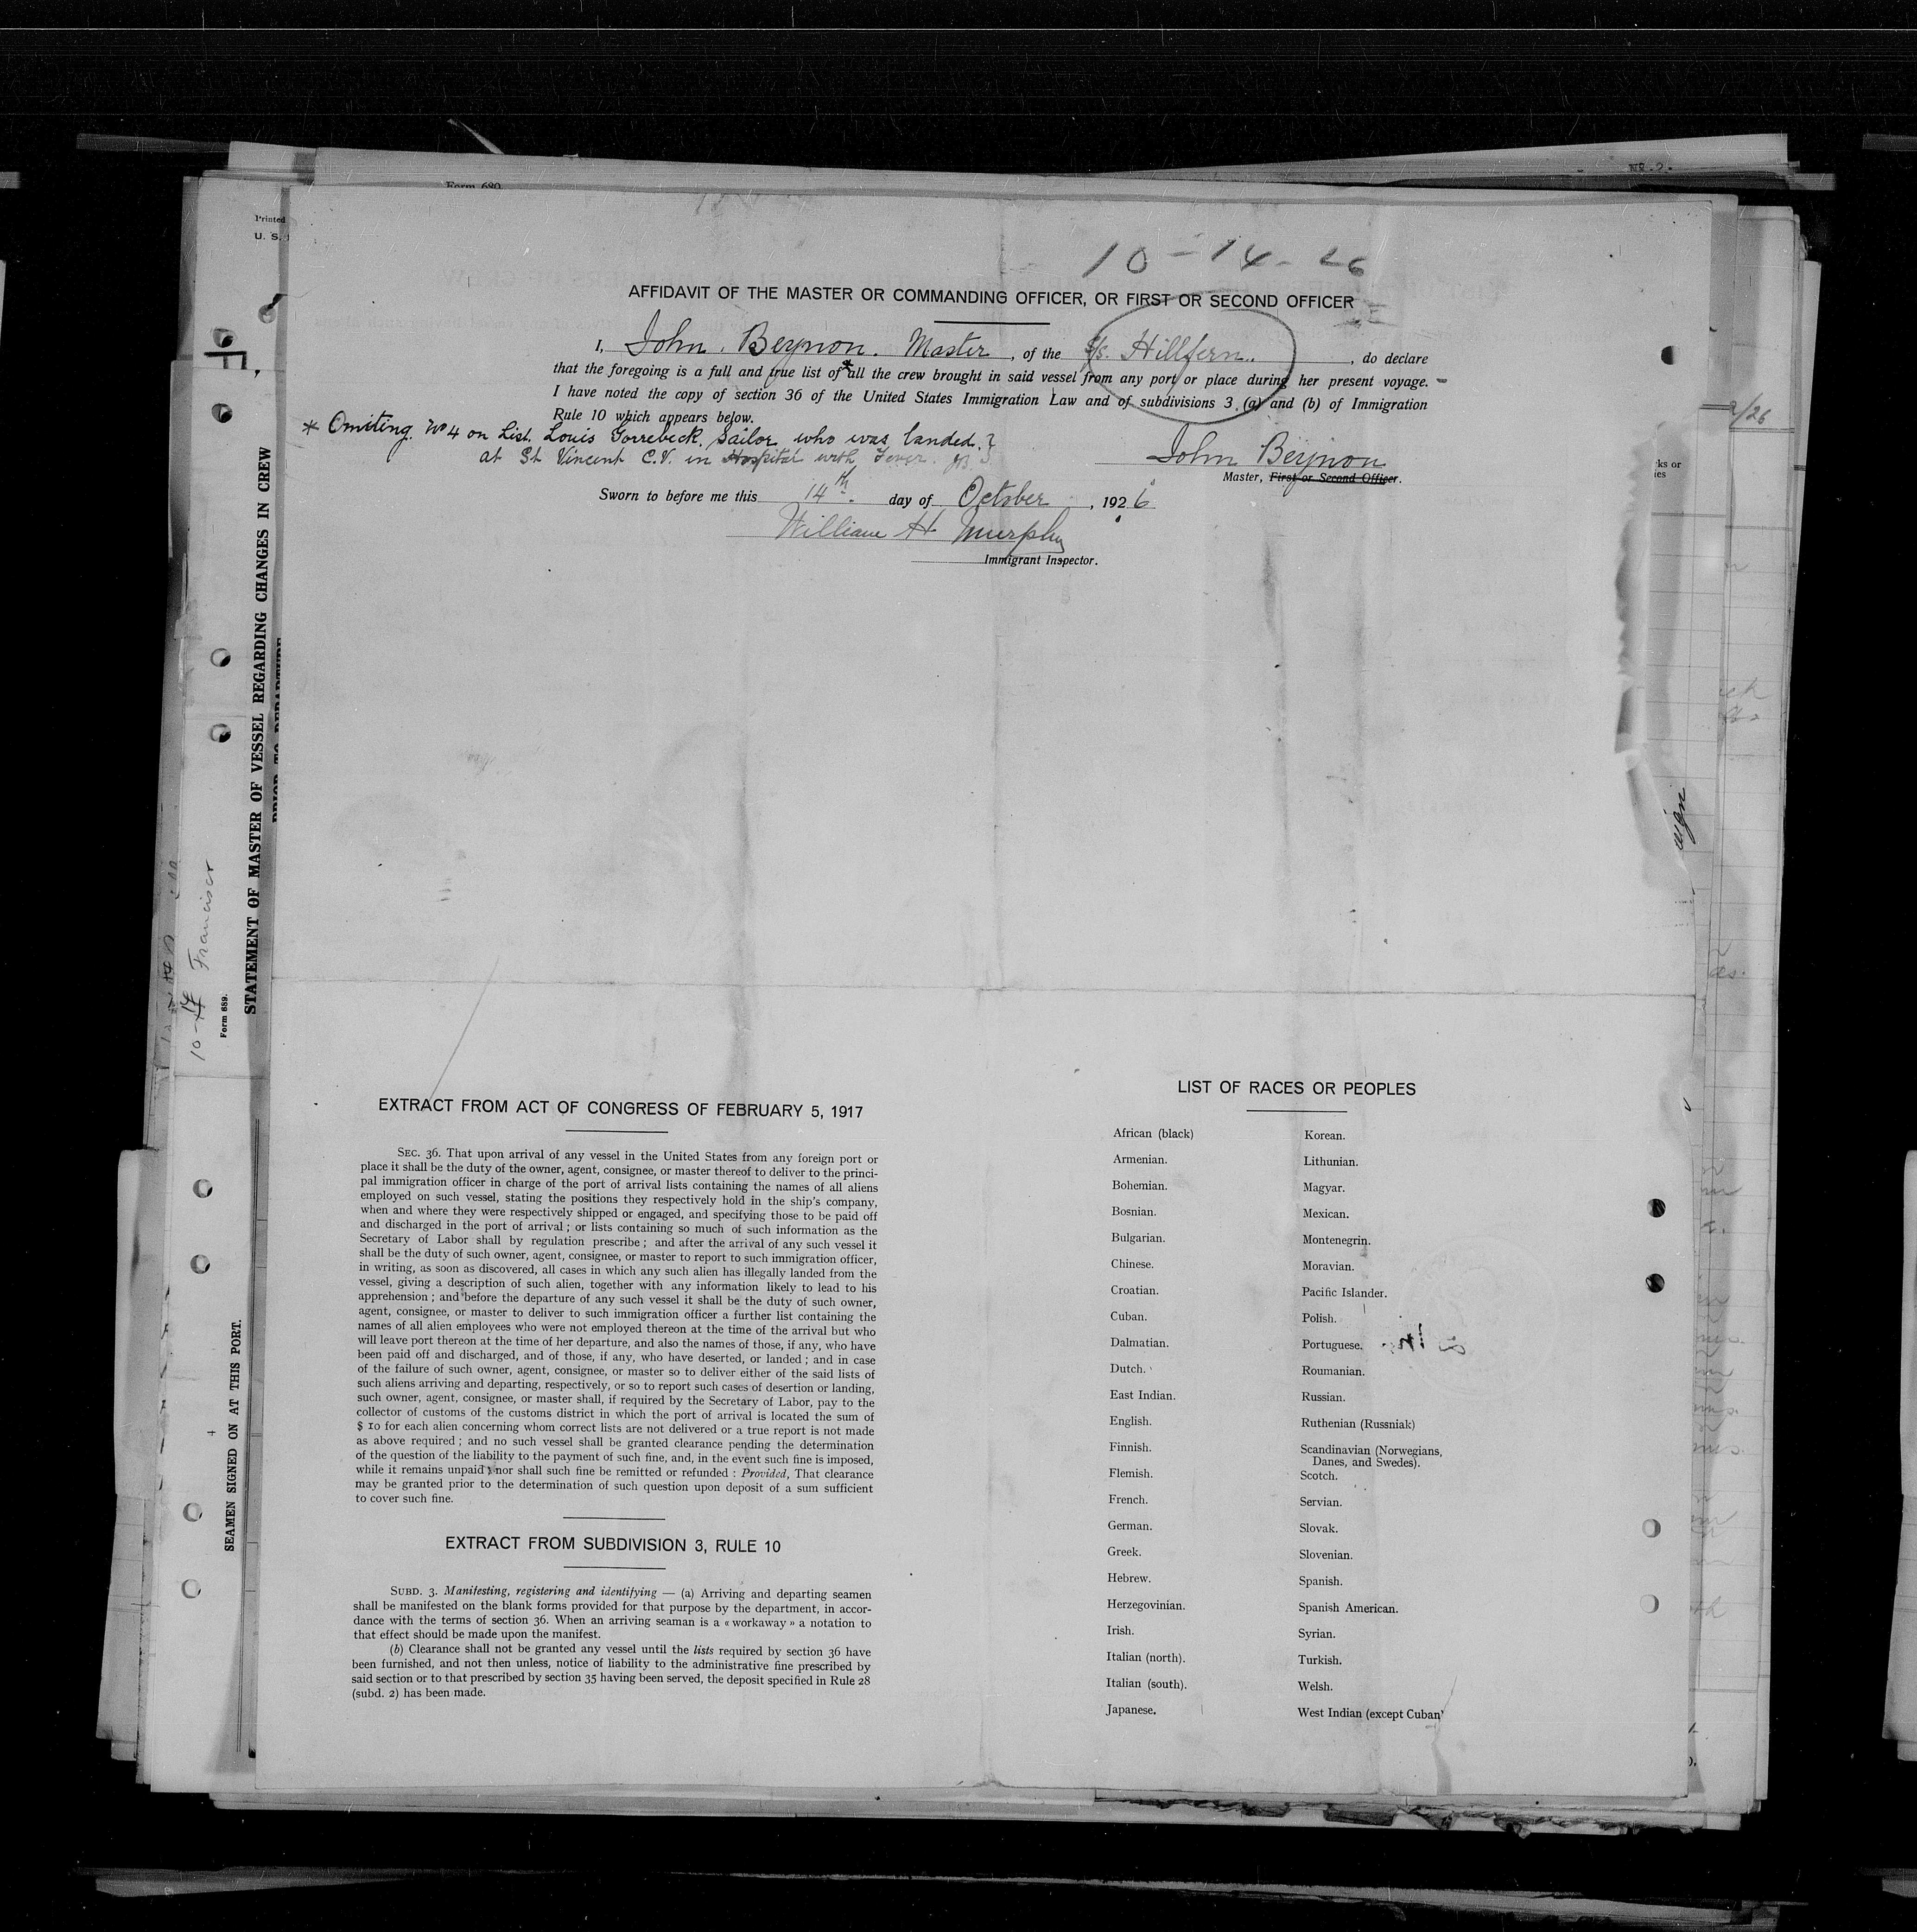 Form 680
No. 2.
Printed
U. S.
10-14-26
AFFIDAVIT OF THE MASTER OR COMMANDING OFFICER, OR FIRST OR SECOND OFFICER
I, John Beynon. Master, of the S/S. Hillfern., do declare
that the foregoing is a full and true list of * all the crew brought in said vessel from any port or place during her present voyage.
I have noted the copy of section 36 of the United States Immigration Law and of subdivisions 3 (a) and (b) of Immigration
Rule 10 which appears below.
* Omiting No 4 on List. Louis Gorrebeck, Sailor who was landed
at St Vincent C.V. in Hospital with Fever. JB.
John Beynon
Master, First or Second Officer.
Sworn to before me this 14th. day of October, 1926
William H Murphy
Immigrant Inspector.
STATEMENT OF MASTER OF VESSEL REGARDING CHANGES IN CREW
PRIOR TO DEPARTURE
Francisco
Form 689.
SEAMEN SIGNED ON AT THIS PORT.
EXTRACT FROM ACT OF CONGRESS OF FEBRUARY 5, 1917
SEC. 36. That upon arrival of any vessel in the United States from any foreign port or
place it shall be the duty of the owner, agent, consignee, or master thereof to deliver to the princi-
pal immigration officer in charge of the port of arrival lists containing the names of all aliens
employed on such vessel, stating the positions they respectively hold in the ship's company,
when and where they were respectively shipped or engaged, and specifying those to be paid off
and discharged in the port of arrival ; or lists containing so much of such information as the
Secretary of Labor shall by regulation prescribe ; and after the arrival of any such vessel it
shall be the duty of such owner, agent, consignee, or master to report to such immigration officer,
in writing, as soon as discovered, all cases in which any such alien has illegally landed from the
vessel, giving a description of such alien, together with any information likely to lead to his
apprehension ; and before the departure of any such vessel it shall be the duty of such owner,
agent, consignee, or master to deliver to such immigration officer a further list containing the
names of all alien employees who were not employed thereon at the time of the arrival but who
will leave port thereon at the time of her departure, and also the names of those, if any, who have
been paid off and discharged, and of those, if any, who have deserted, or landed ; and in case
of the failure of such owner, agent, consignee, or master so to deliver either of the said lists of
such aliens arriving and departing, respectively, or so to report such cases of desertion or landing,
such owner, agent, consignee, or master shall, if required by the Secretary of Labor, pay to the
collector of customs of the customs district in which the port of arrival is located the sum of
$ 10 for each alien concerning whom correct lists are not delivered or a true report is not made
as above required ; and no such vessel shall be granted clearance pending the determination
of the question of the liability to the payment of such fine, and, in the event such fine is imposed,
while it remains unpaid ; nor shall such fine be remitted or refunded : Provided, That clearance
may be granted prior to the determination of such question upon deposit of a sum sufficient
to cover such fine.
EXTRACT FROM SUBDIVISION 3, RULE 10
SUBD. 3. Manifesting, registering and identifying — (a) Arriving and departing seamen
shall be manifested on the blank forms provided for that purpose by the department, in accor-
dance with the terms of section 36. When an arriving seaman is a « workaway » a notation to
that effect should be made upon the manifest.
(b) Clearance shall not be granted any vessel until the lists required by section 36 have
been furnished, and not then unless, notice of liability to the administrative fine prescribed by
said section or to that prescribed by section 35 having been served, the deposit specified in Rule 28
(subd. 2) has been made.
LIST OF RACES OR PEOPLES
African (black)
Armenian.
Bohemian.
Bosnian.
Bulgarian.
Chinese.
Croatian.
Cuban.
Dalmatian.
Dutch.
East Indian.
English.
Finnish.
Flemish.
French.
German.
Greek.
Hebrew.
Herzegovinian.
Irish.
Italian (north).
Italian (south).
Japanese.
Korean.
Lithunian.
Magyar.
Mexican.
Montenegrin.
Moravian.
Pacific Islander.
Polish.
Portuguese.
Roumanian.
Russian.
Ruthenian (Russniak)
Scandinavian (Norwegians,
Danes, and Swedes).
Scotch.
Servian.
Slovak.
Slovenian.
Spanish.
Spanish American.
Syrian.
Turkish.
Welsh.
West Indian (except Cuban)